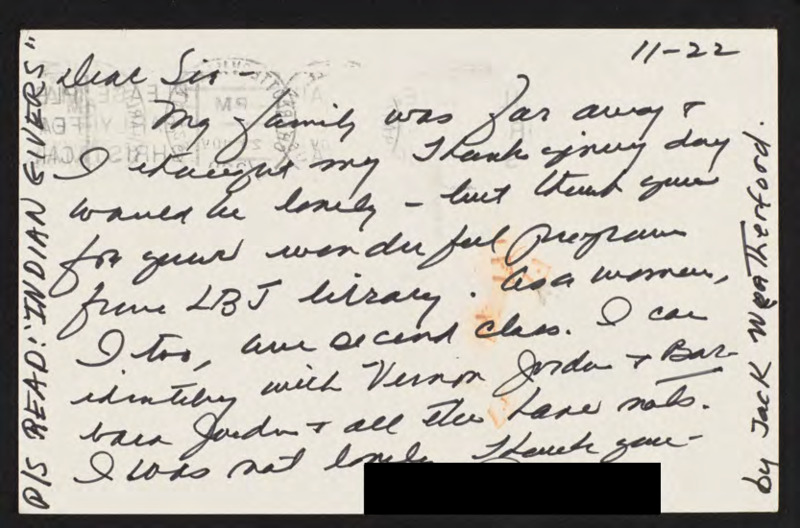 11-22
Dear Sir -
My family was far away &
I thought my Thanksgiving day
would be lonely - but thank you
for your wonderful program
from LBJ library. As a woman,
I too, am second class. I can
identify with Vernon Jordan & Bar-
bara Jordan & all the have nots.
I was not lonely Thank you -
P/S READ: "INDIAN GIVERS"
by Jack Weatherford.